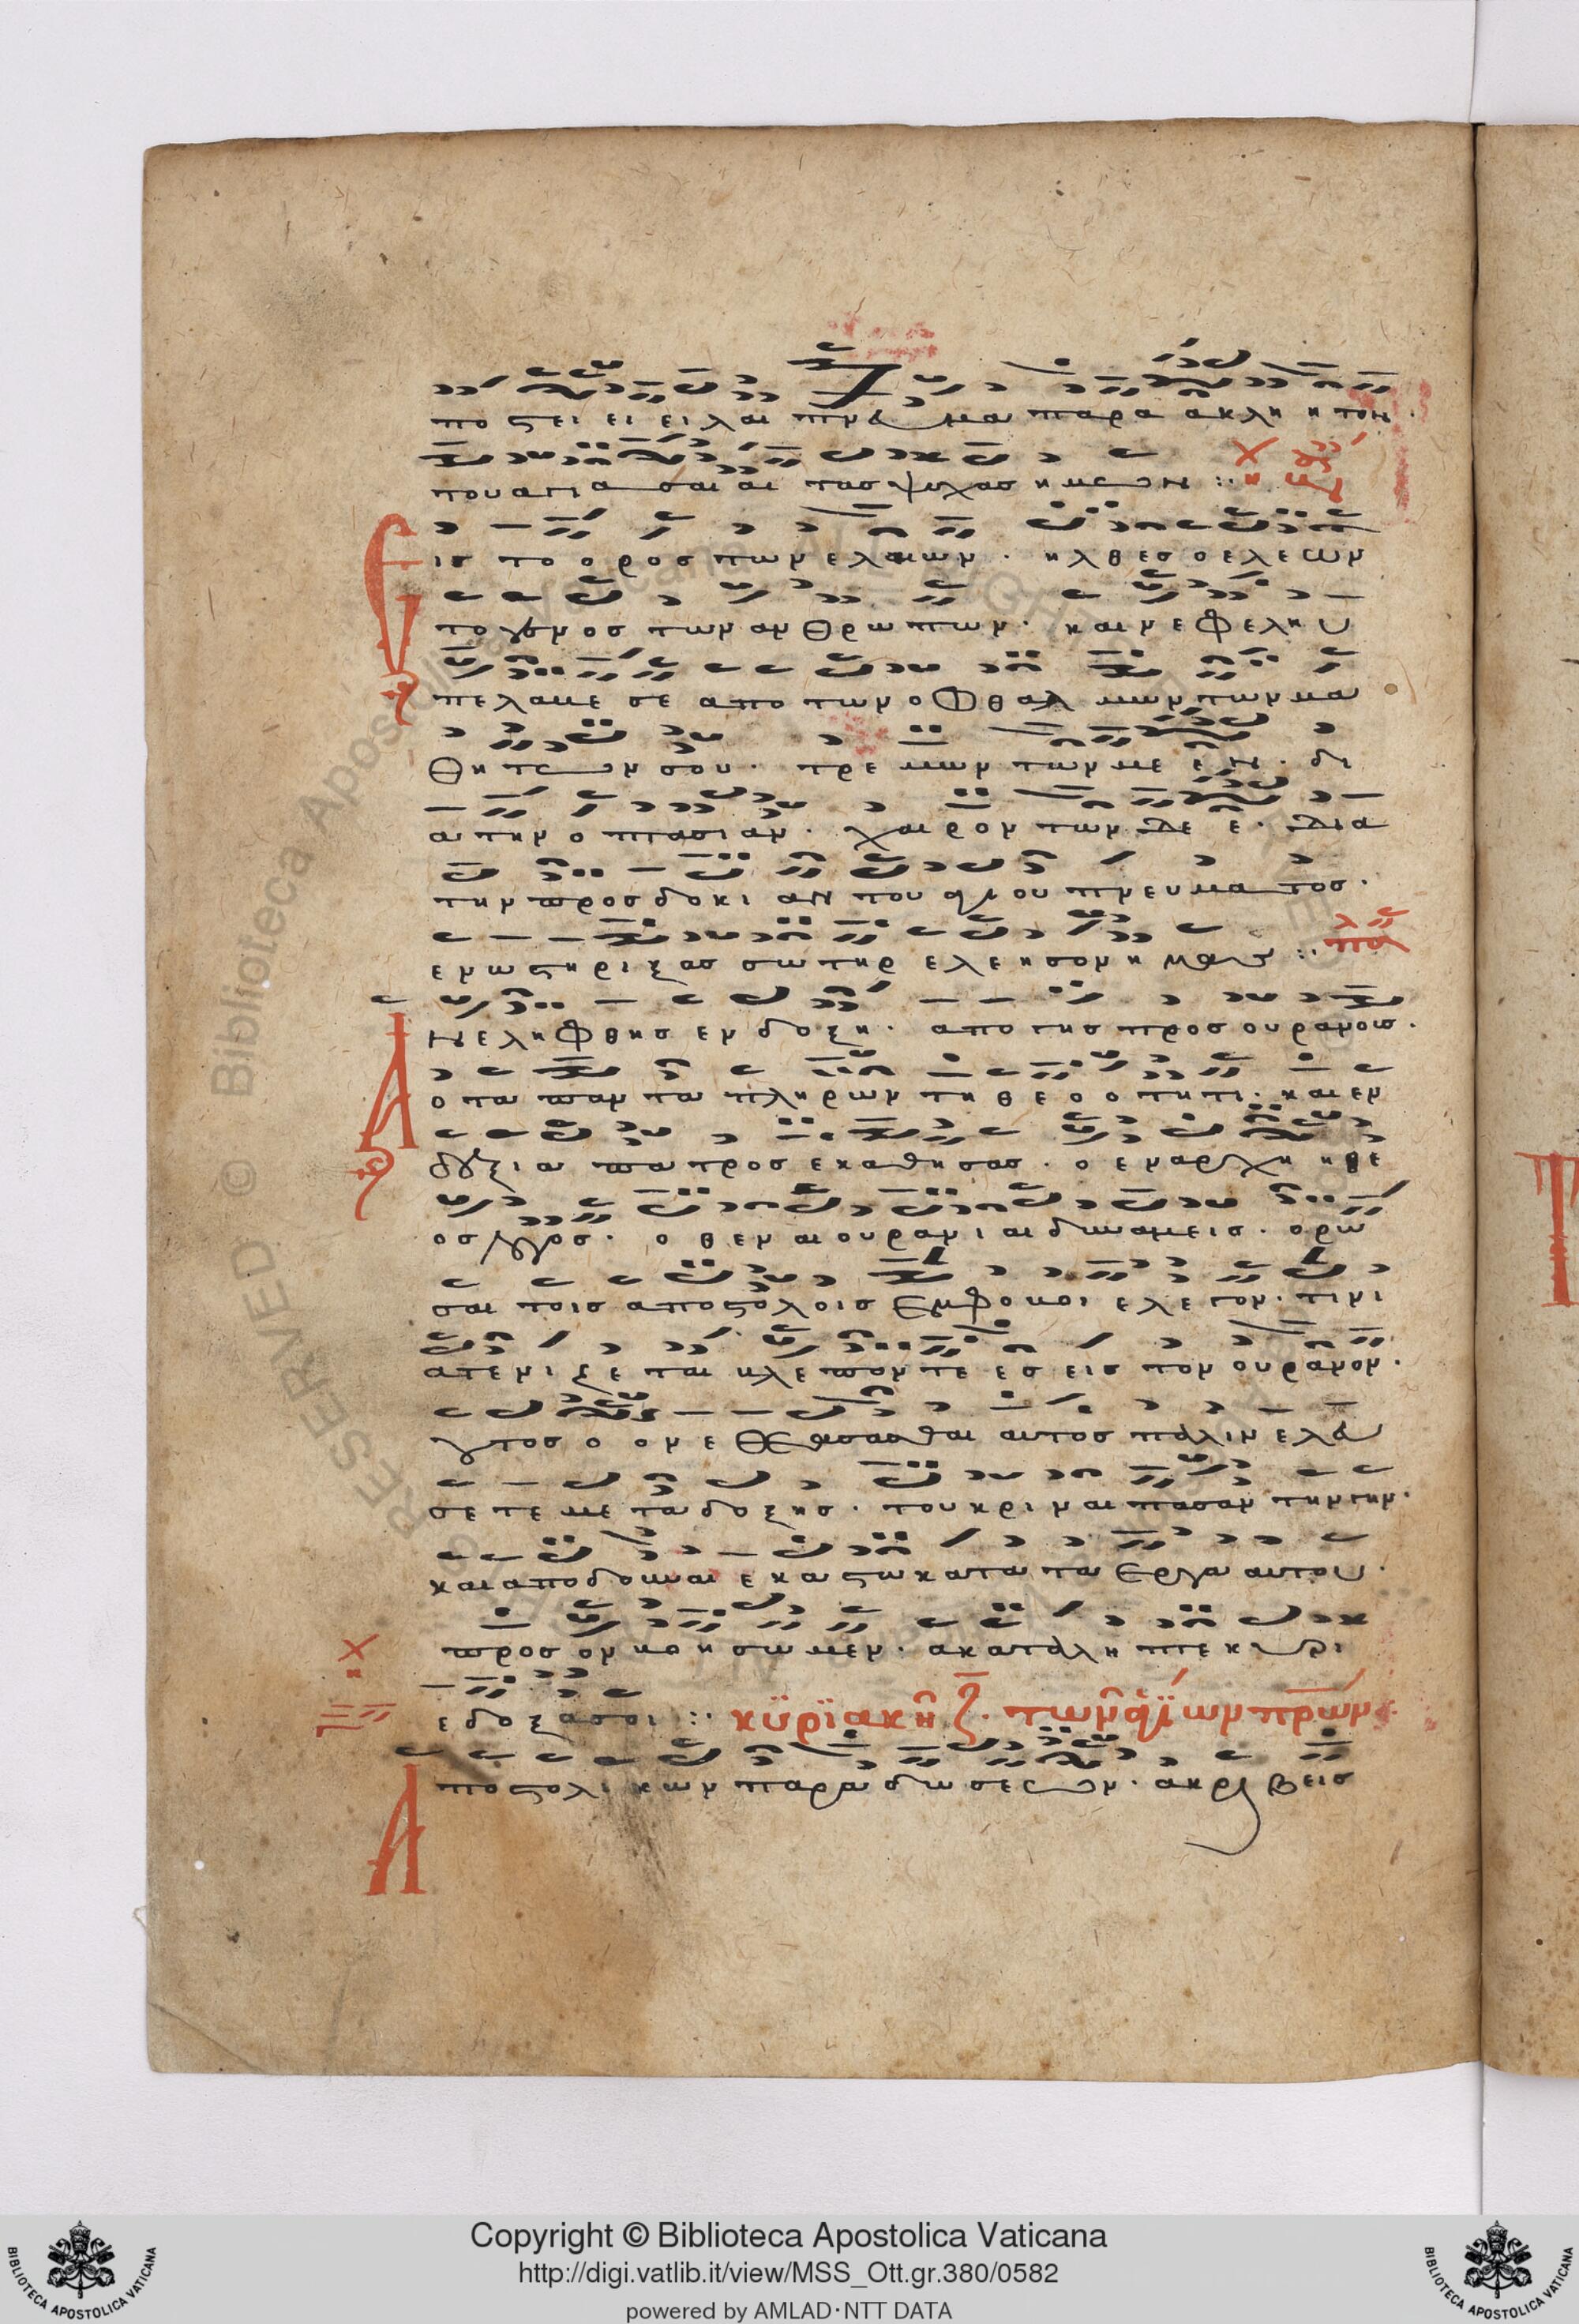 πο ϛει ει ει λαι πνευ μα παρα α κλη η τον ·
του αγια σαι αι τας ψυχας η μων :·
Εις το ο ρος των ελαιων · ηλθες ο ελεων
το γενος των αν θρω πων · και νε φελη υ
πελαβε σε απο των ο φθαλ μων των μα
θη των σου · τρε μων των με ε εν · δι
αυτην οπτασιαν · χαιρον των δε ε · δια
την προσδοκι αν του αγιου πνευματος ·
εν ω στηριξας σωτηρ ελεησον η μας :·
Ανεληφθης εν δοξη · απο γης προς ουρανους ·
ο τα παν τα πληρων τη θε ο ο τητι · και εν
δεξια πατρος εκαθησας · ο εν αρχη η θε
ος λογος · ο θεν αι ουρανι αι δυναμεις · ορω
σαι τοις αποστολοις εμφοβοι ελεγον · τι νι
ατενιζεται βλεποντε ες εις τον ουρανον ·
ουτος ο ον ε θεασασθαι αυτος παλιν ελευ
σετε με τα δοξης · του κριναι πασαν την γην ·
και αποδουναι εκαστω κατα τα εργα αυτου ·
προς ον βοησωμεν · ακαταληπτε κυρι
ε δοξα σοι :· κυριακη ζ · των αγιων πρων
Αποστολικων παραδωσεων · ακριβεις
Copyright © Biblioteca Apostolica Vaticana
http://digi.vatlib.it/view/MSS_Ott.gr.380/0582
powered by AMLAD·NTT DATA